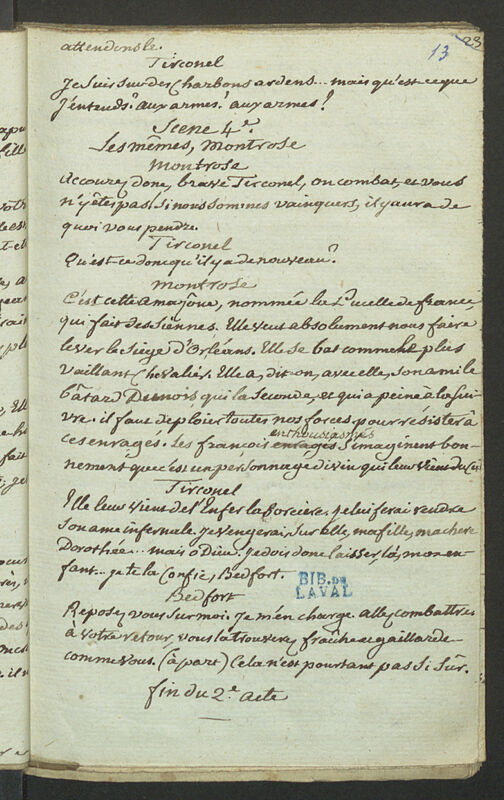 23
13
attendons le.
Tirconel
Je suis sur des Charbons ardens... mais qu'est ce que
j'entends? aux armes! aux armes!
Scene 4e.
Les mêmes, Montrose
Montrose
Accourez donc, brave Tirconel, on combat, et vous
n'y êtes pas. Si nous sommes vainqueurs, il y aura de
quoi vous pendre.
Tirconel
Qu'est-ce donc qu'il y a de nouveau?
Montrose
C'est cette amazône, nommée la Pucelle de france,
qui fait des siènnes. Elle veut absolument nous faire
lever le Siège d'Orléans. Elle se bat comme le plus
vaillant Chevalier. Elle a, dit-on, avec elle, son ami le
bâtard Dunois qui la seconde, et qui a peine à la sui-
vre. il faut deploier toutes nos forces pour résister à
ces enragés. Les françois enragés enthousiasmés s'imaginent bon-
nement que c'est un personnage divin qui leur vient du ciel
Tirconel
Elle leur vient de l'Enfer la sorcière. je lui ferai rendre
son ame infernale. Je vengerai sur elle, ma fille, ma chere
Dorothée... mais ô Dieu, je dois donc laisser, là, mon en-
fant... je te la confie, Bedfort.
BIB. DE
LAVAL
Bedfort
Reposez vous sur moi. Je m'en charge. allez combattre,
à votre retour, vous la trouverez fraîche et gaillarde
comme vous. (à part) Cela n'est pourtant pas si sûr.
fin du 2.e acte